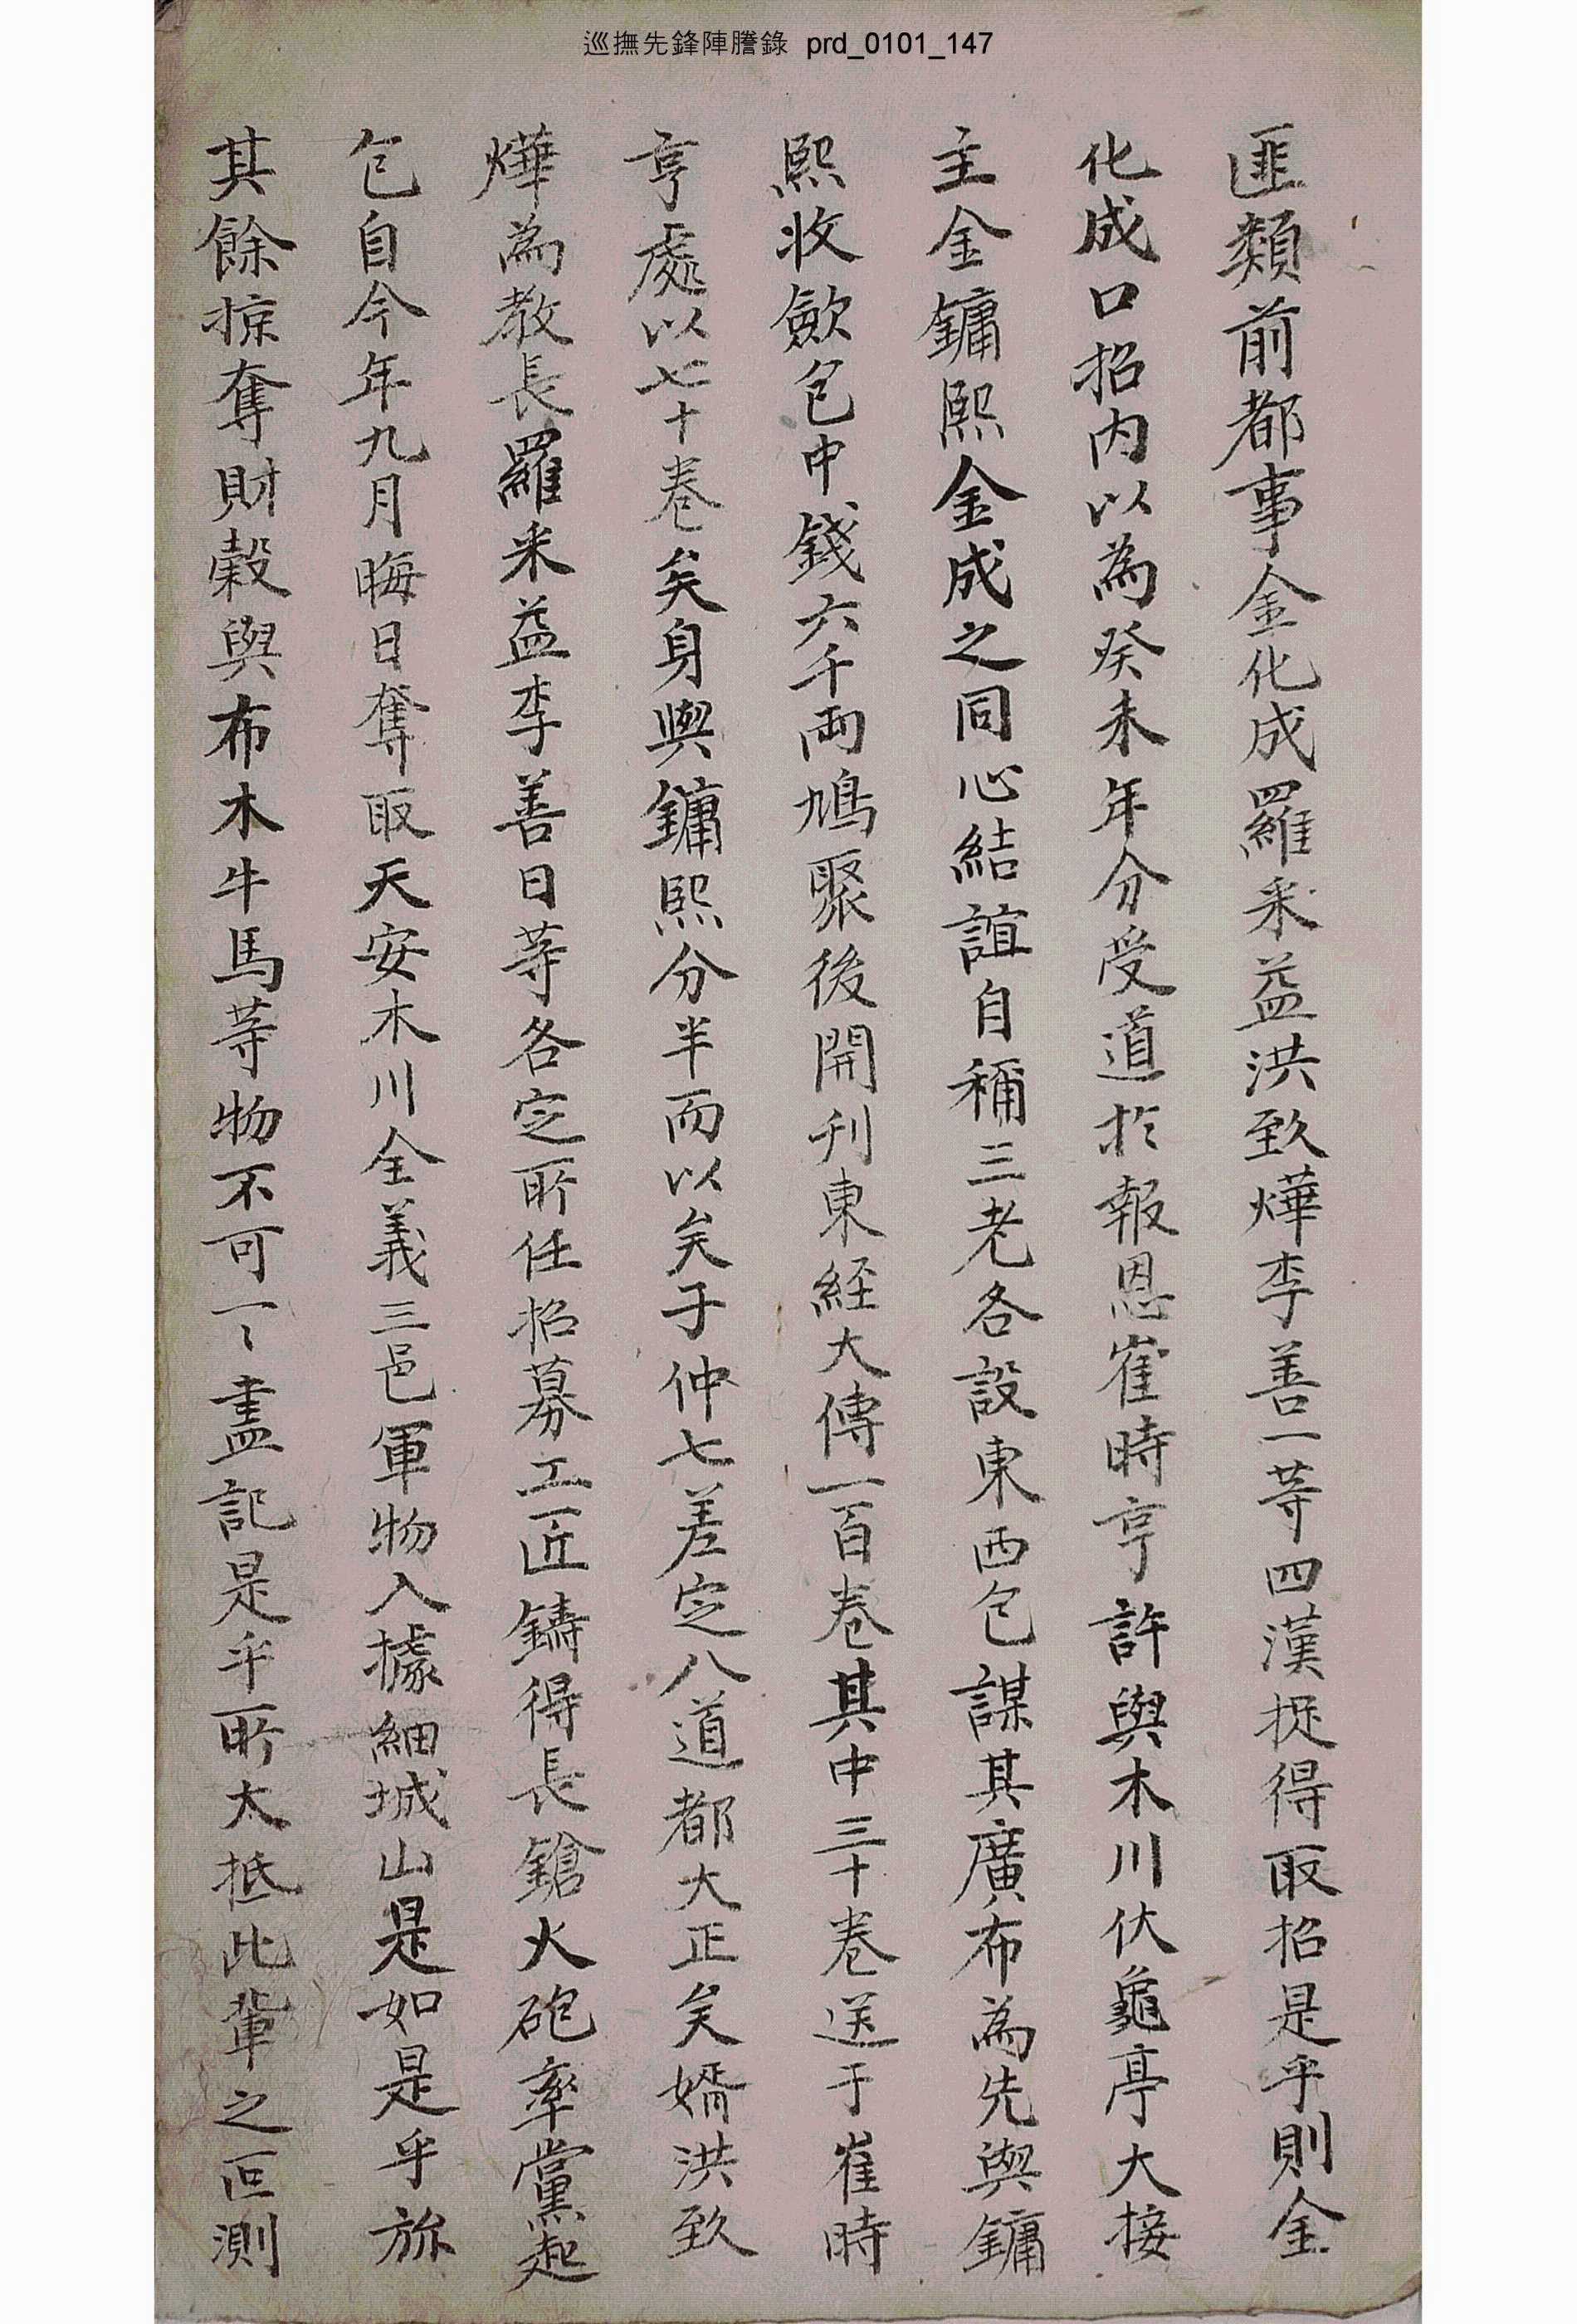 巡撫先鋒陣謄錄 prd_0101_147
匪類前都事金化成羅釆益洪致燁李善一等四漢捉得取招是乎則金
化成口招內以為癸未年分受道扵報恩崔時亨許與木川伏龜亭大接
主金鏞熙金成之同心結誼自稱三老各設東西包謀其廣布為先與鏞
熙收斂包中錢六千両鳩聚後開刋東経大傳一百卷其中三十卷送于崔時
亨處以七十卷矣身與鏞熙分半而以矣子仲七差定八道都大正矣婿洪致
燁為教長羅釆益李善日等各定所任招募工匠鑄得長鎗火砲率黨起
包自今年九月晦日奪取天安木川全義三邑軍物入據細城山是如是乎旀
其餘掠奪財穀與布木牛馬等物不可一〻盡記是乎所太抵此輩之叵測